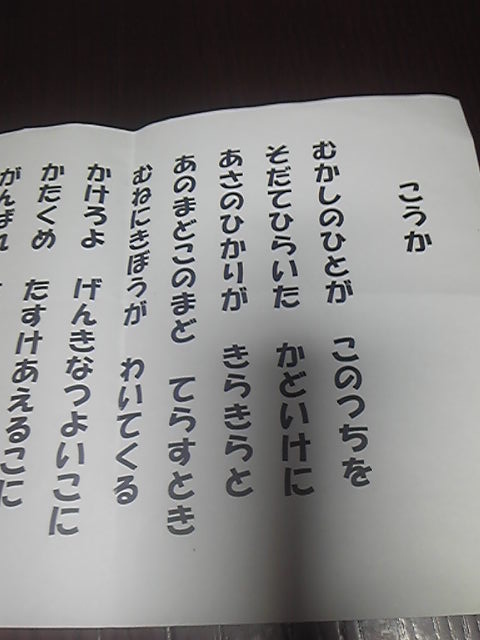 こうか
むかしのひとが このつちを
そだてひらいた かどいけに
あさのひかりが きらきらと
あのまどこのまど てらすとき
むねにきぼうが わいてくる
かけろよ げんきなつよいこに
かたくめ たすけあえるこに
がんばれ